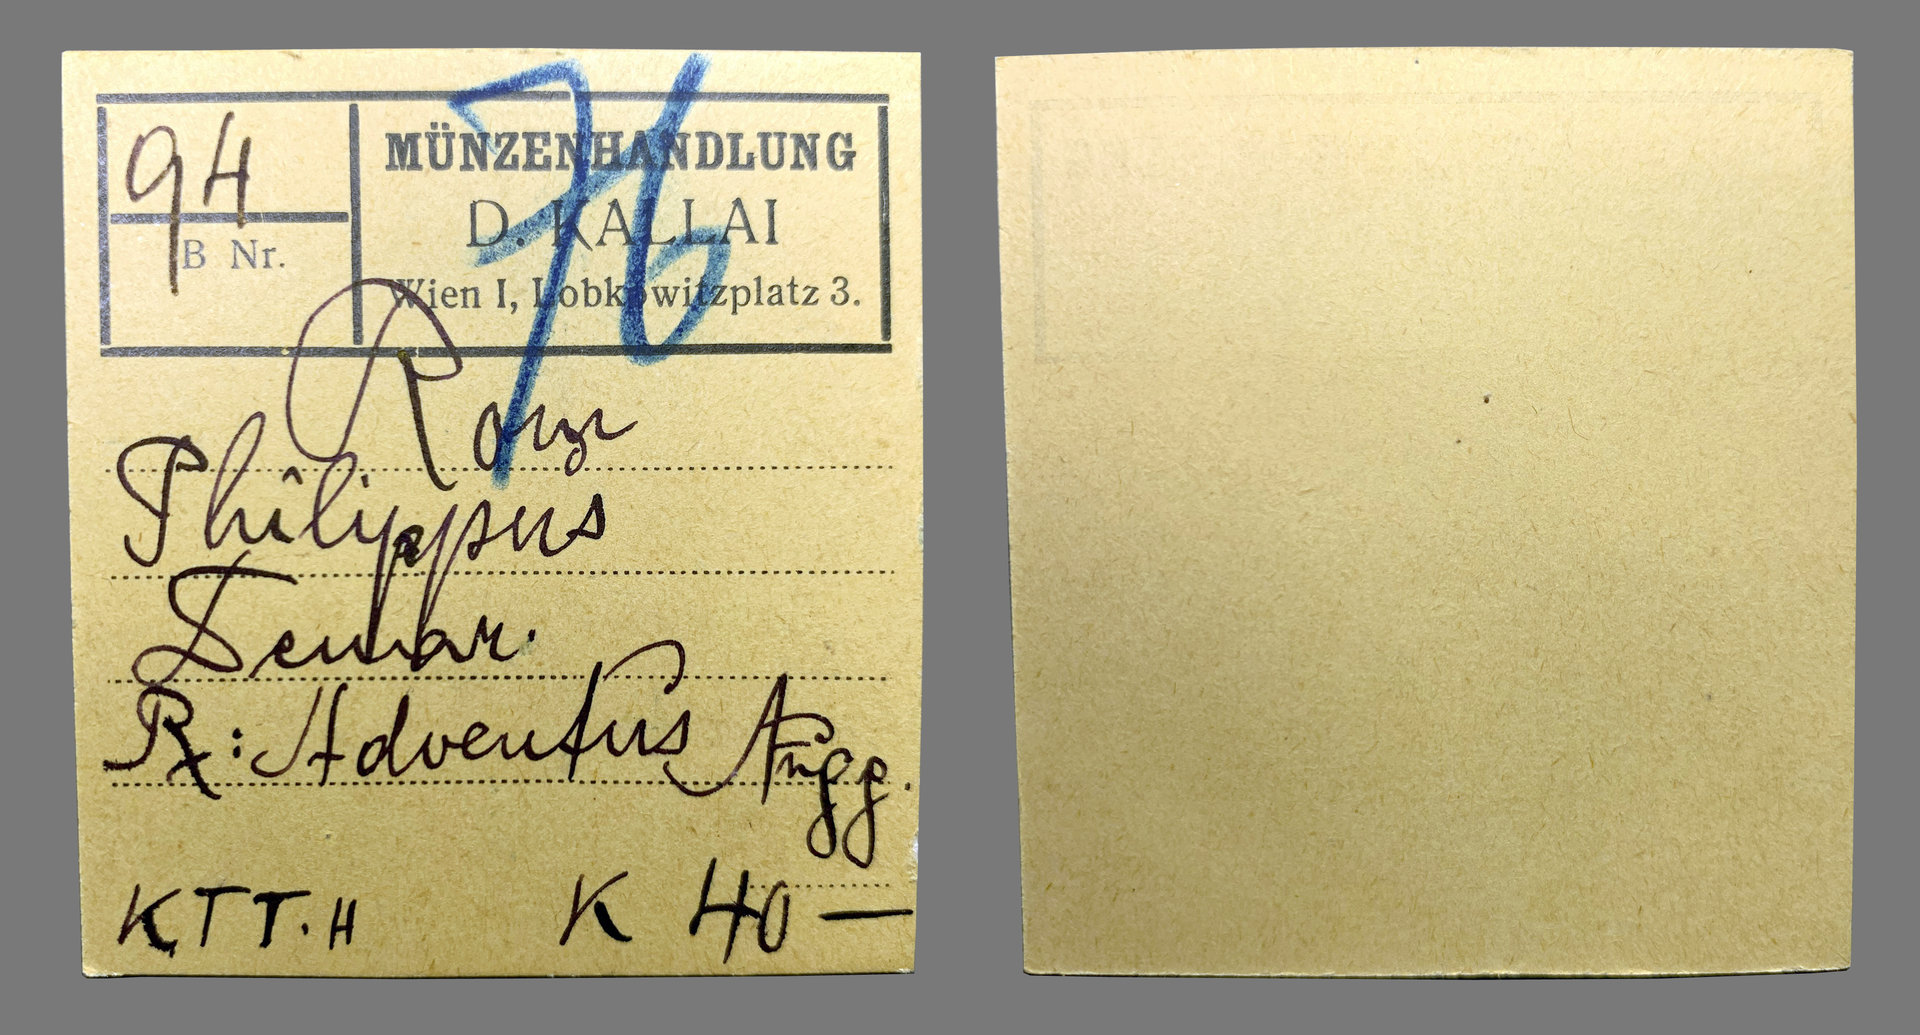 94
B Nr.
76
MÜNZENHANDLUNG
D. KALLAI
Wien I, Lobkowitzplatz 3.
Rom
Philippus
Denar.
Rx: Adventus Augg.
KTT.H K 40 —